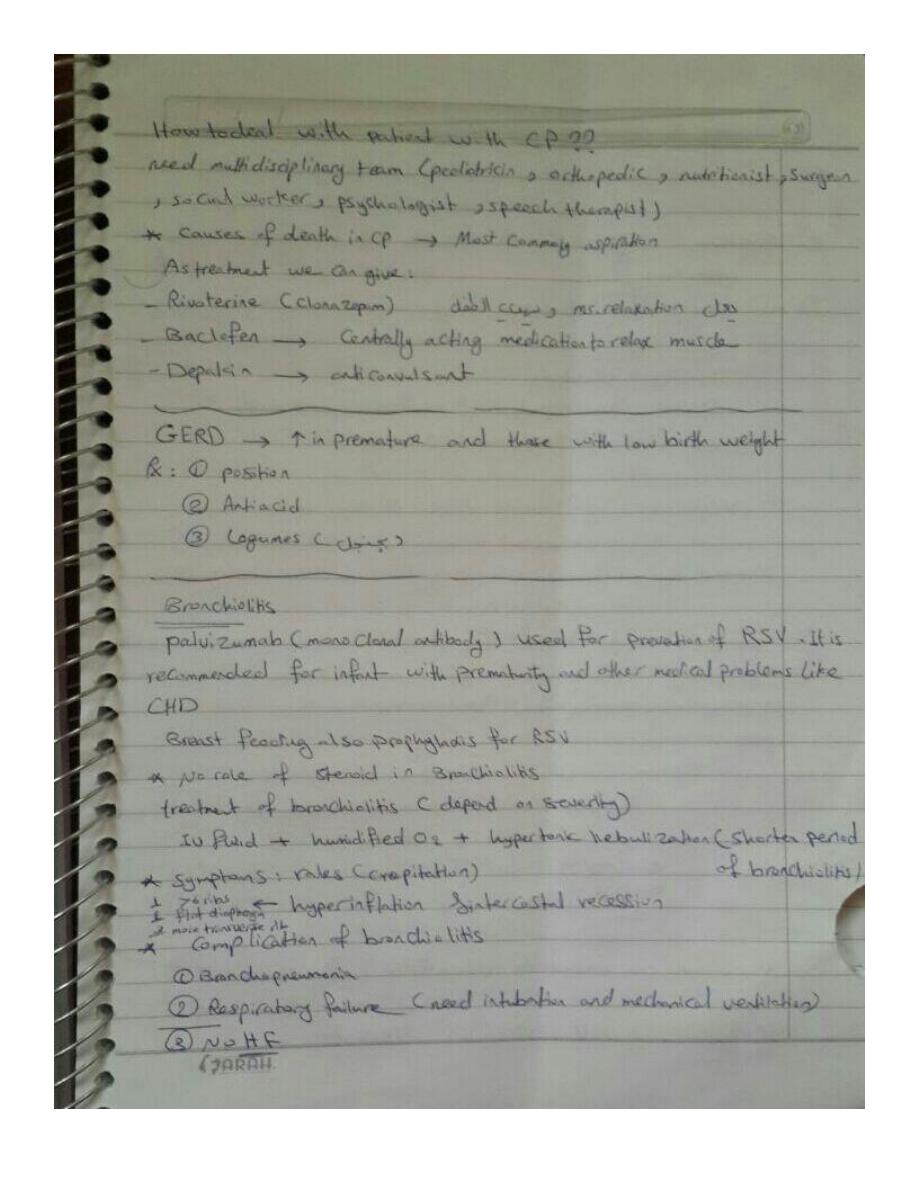 How to deal with patient with CP ??
need multidisciplinary team (pediatricin , orthopedic , nutritionist , surgeon
, social worker , psychologist , speech therapist)
* Causes of death in CP → Most Commoly aspiration
As treatment we can give :
- Rivoterine (Clonazepam) ms. relaxation
- Baclofen → Centrally acting medication to relax muscle
- Depakin → anticonvulsant
GERD → ↑ in premature and those with low birth weight
℞ : ① position
② Antiacid
③ Legumes ( )
Bronchiolitis
palvizumab (mono clonal antibody) used for prevation of RSV . It is
recommended for infant with prematurity and other medical problems like
CHD
Breast feeding also prophylaxis for RSV
* No role of steroid in Bronchiolitis
treatment of bronchiolitis ( depend on severity)
IV fluid + humidified O2 + hypertonic nebulization (shorter period
of bronchiolitis)
* Symptoms : rales (crepitation)
>6 ribs ← hyperinflation & intercostal recession
flat diaphragm
more transverse rib
* Complication of bronchiolitis
① Bronchopneumonia
② Respiratory failure (need intubation and mechanical ventilation)
③ No HF
SARAH